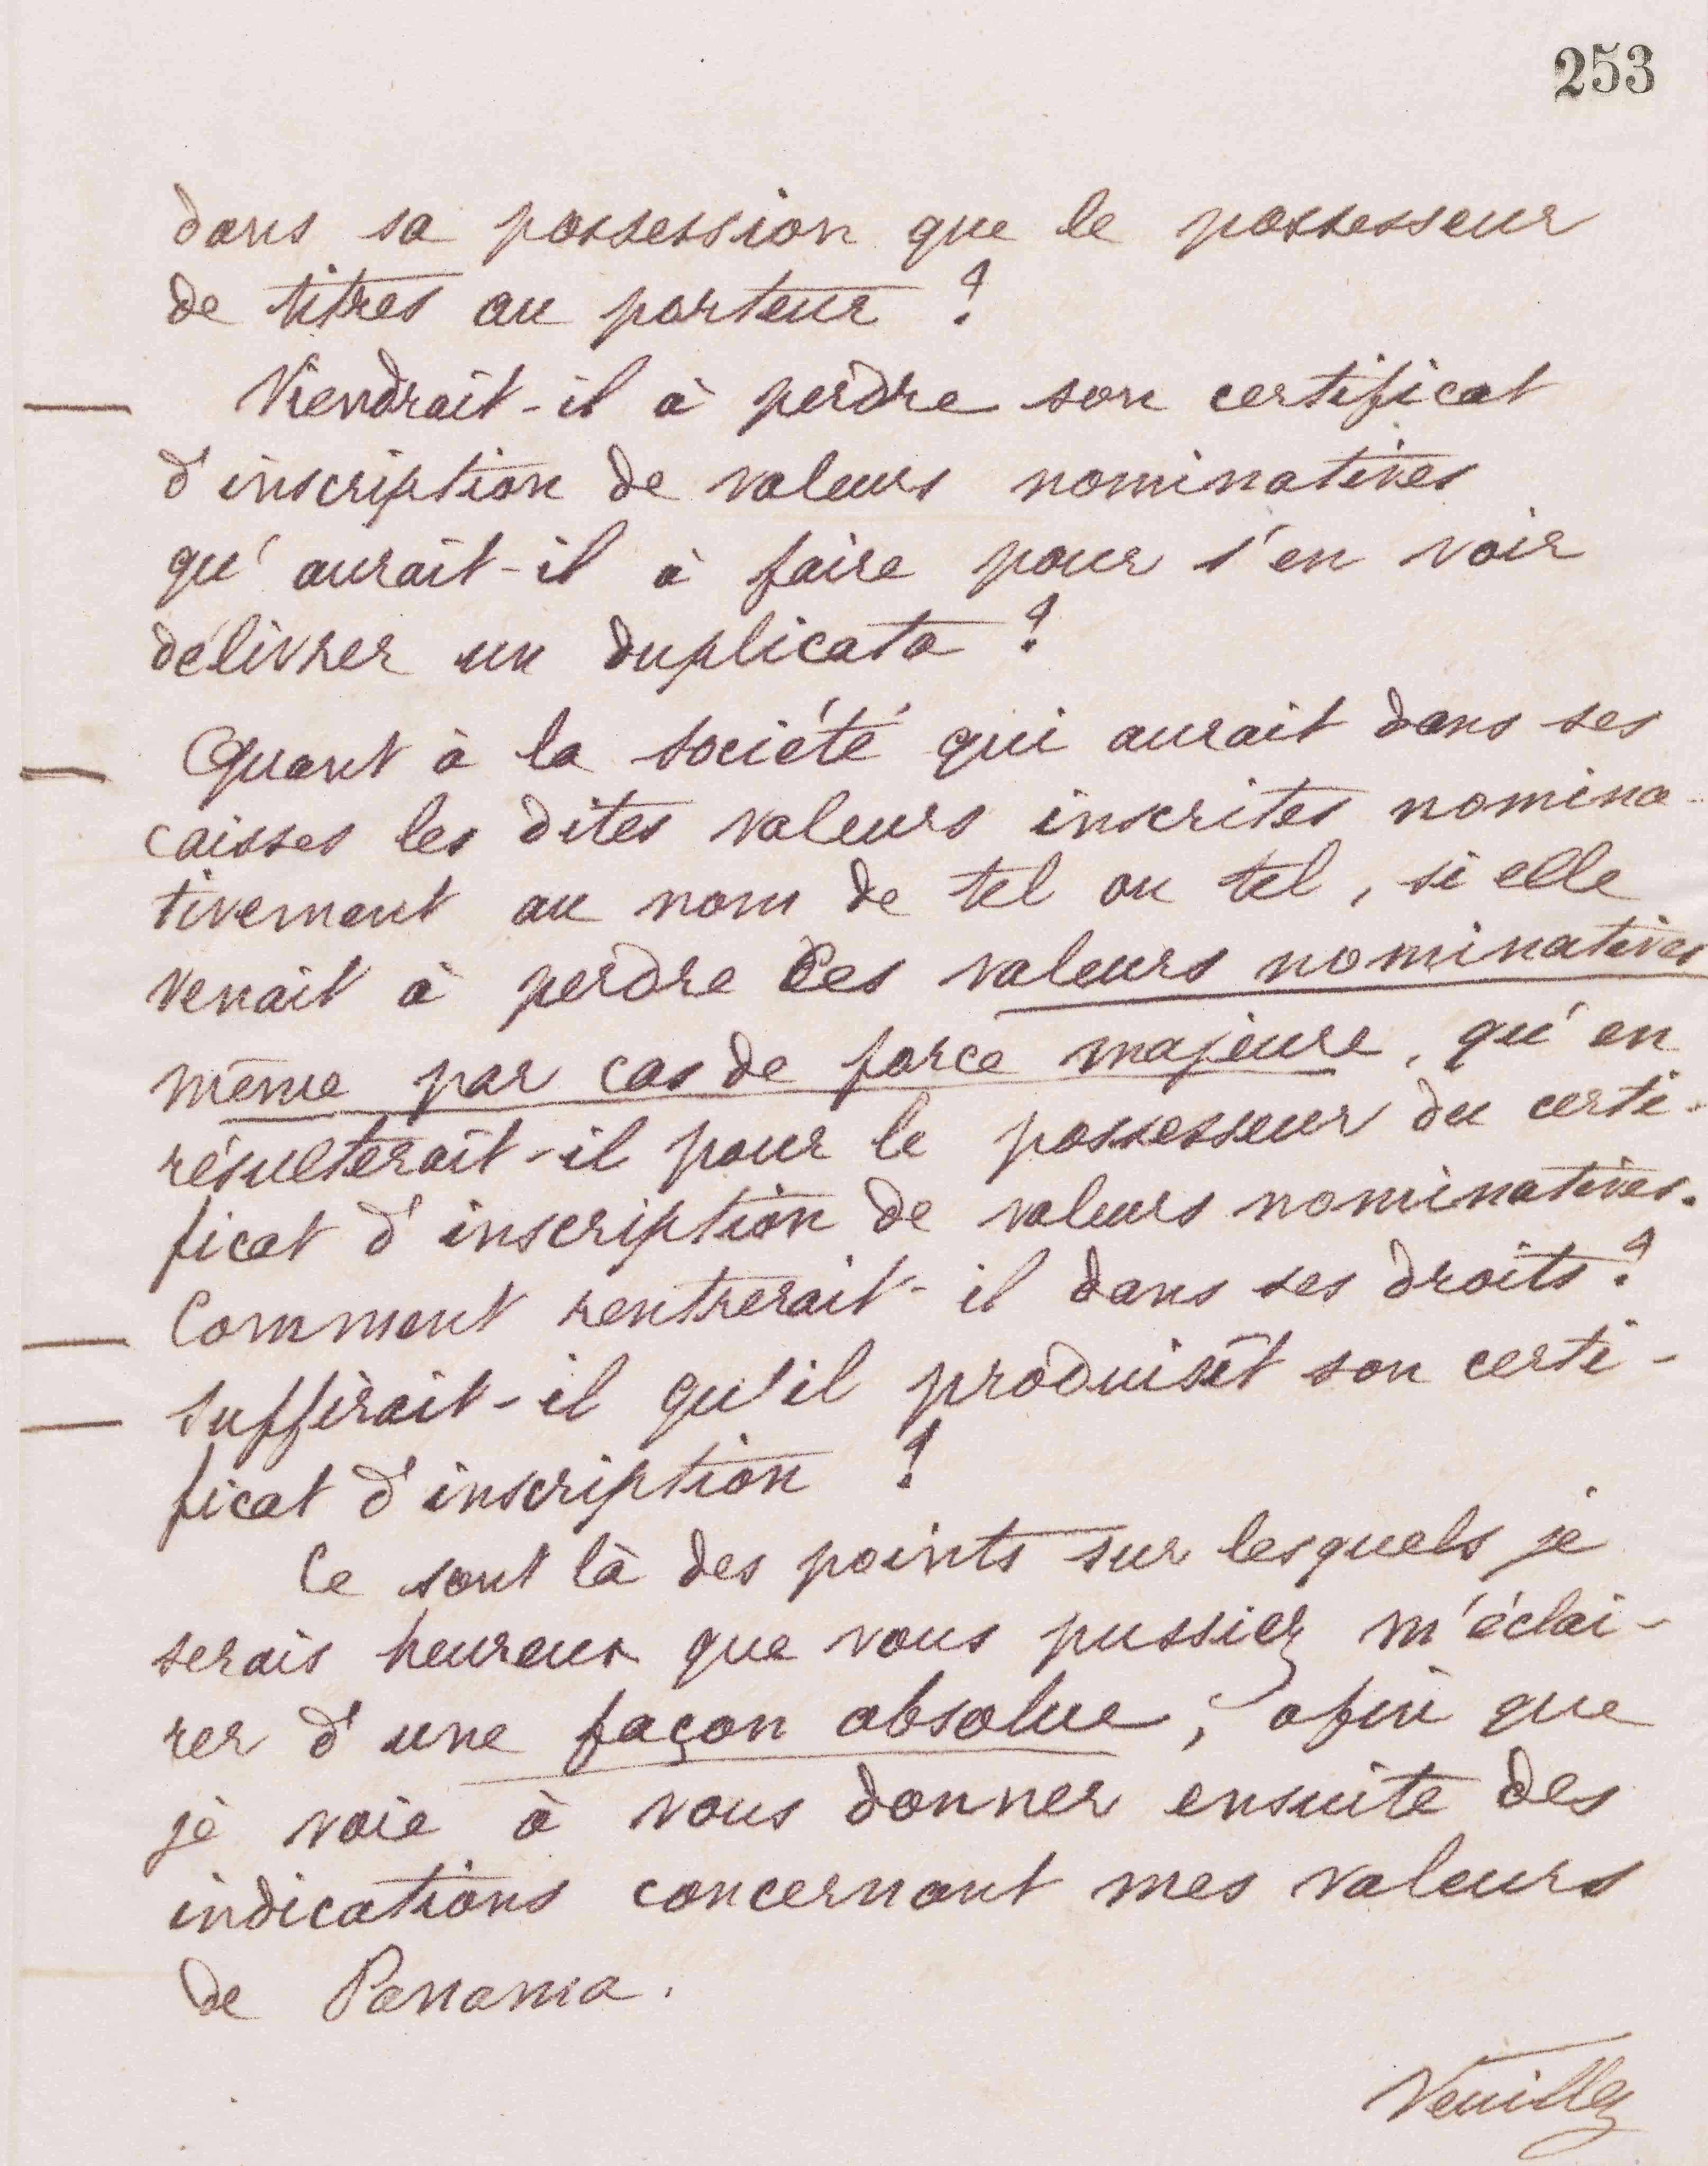 253
dans sa possession que le possesseur
de titres au porteur ?
— Viendrait-il à perdre son certificat
d'inscription de valeurs nominatives
qu'aurait-il à faire pour s'en voir
délivrer un duplicata ?
— Quant à la société qui aurait dans ses
caisses les dites valeurs inscrites nomina-
tivement au nom de tel ou tel, si elle
venait à perdre ces valeurs nominatives
même par cas de force majeure, qu'en
résulterait-il pour le possesseur du certi-
ficat d'inscription de valeurs nominatives.
— Comment rentrerait-il dans ses droits ?
— Suffirait-il qu'il produisît son certi-
ficat d'inscription ?
Ce sont là des points sur lesquels je
serais heureux que vous pussiez m'éclai-
rer d'une façon absolue, afin que
je voie à vous donner ensuite des
indications concernant mes valeurs
de Panama.
Veuillez